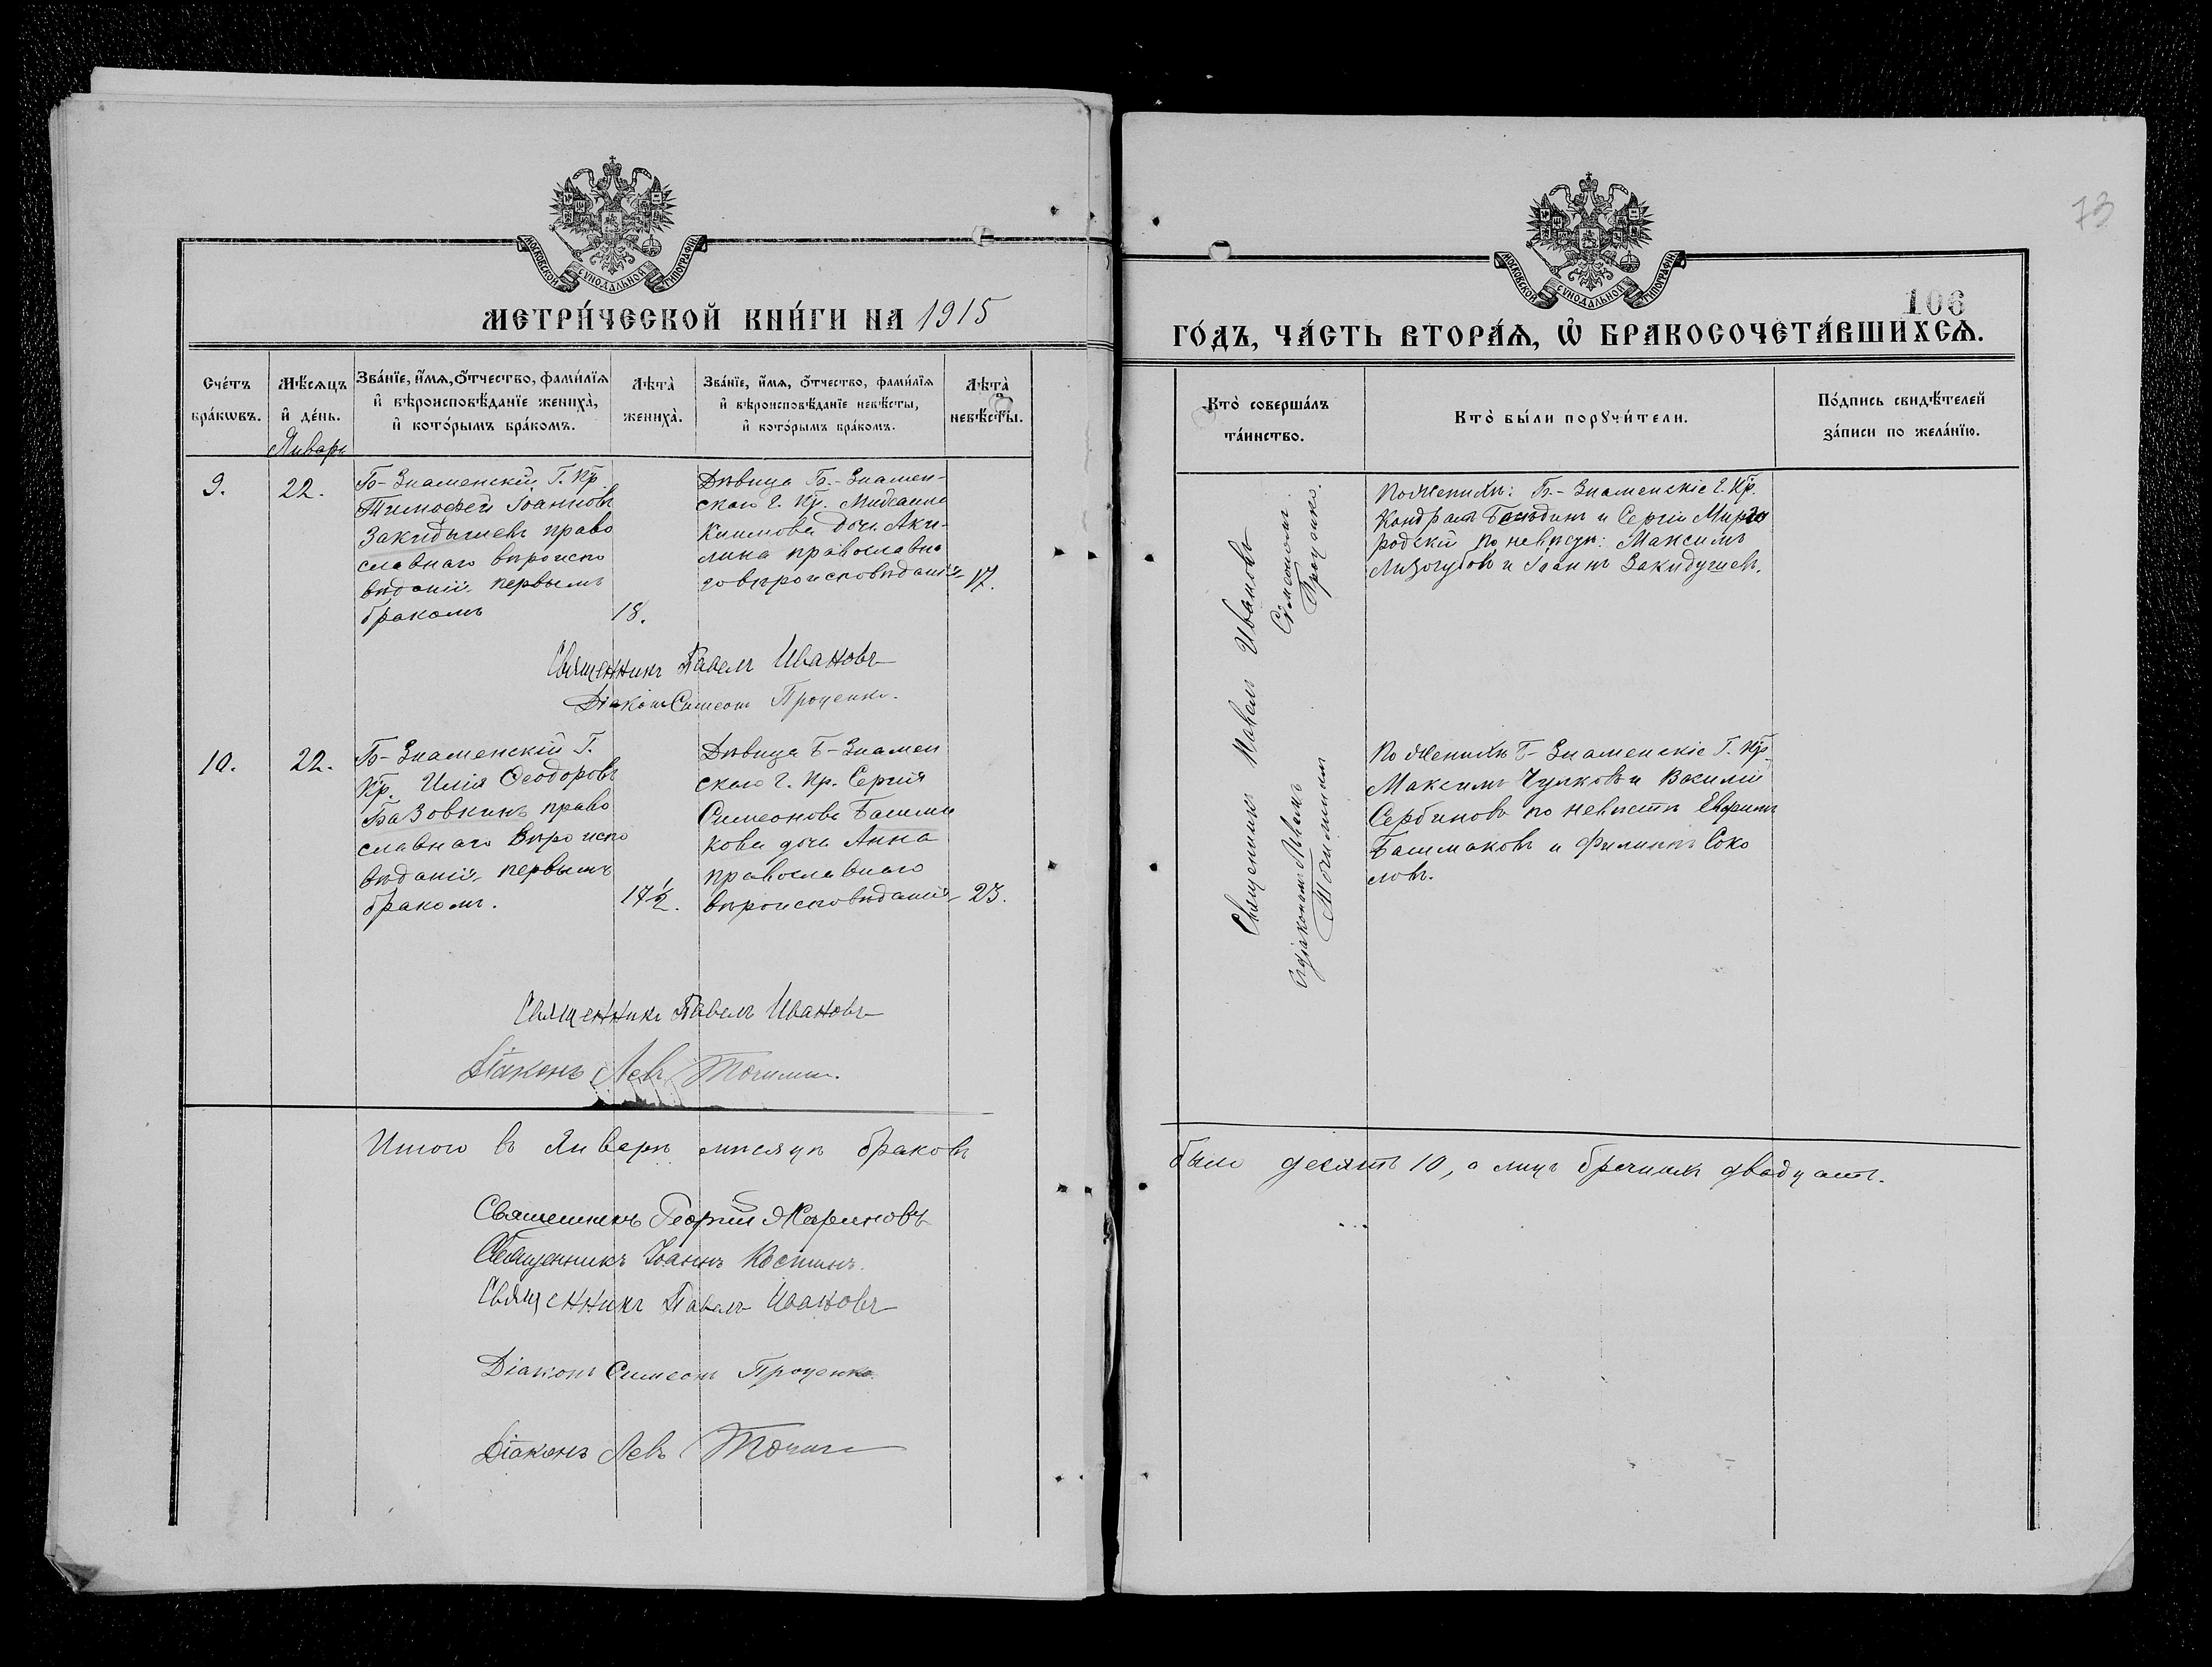 73
МОСКОВСКОЙ СѴНОДАЛЬНОЙ ТИПОГРАФІИ
МОСКОВСКОЙ СѴНОДАЛЬНОЙ ТИПОГРАФІИ
106
МЕТРИ́ЧЕСКОЙ КНИ́ГИ НА 1915
ГО́ДЪ, ЧА́СТЬ ВТОРА́Я, Ѡ҆ БРАКОСОЧЕТА́ВШИХСѦ.
Сче́тъ
бра́кѡвъ.
Мѣ́сяцъ
и҆ де́нь.
Январь
Зва́нїе, и҆́мѧ, ѻ҆́тчество, фами́лїѧ
и҆ вѣроисповѣ́данїе жениха̀,
и҆ кото́рымъ бра́комъ.
Лѣта̀
жениха̀.
Зва́нїе, и҆́мѧ, ѻ҆́тчество, фами́лїѧ
и҆ вѣроисповѣ́данїе невѣ́сты,
и҆ кото́рымъ бра́комъ.
Лѣта̀
невѣ́сты.
Кто̀ соверша́лъ
та́инство.
Кто̀ бы́ли порꙋчи́тели.
По́дпись свидѣ́телей
за́писи по жела́нїю.
9.
22.
Б-Знаменскій Г. Кр.
Тимоѳей Іоанновъ
Закидышевъ право
славнаго вѣроиспо
вѣданія, первымъ
бракомъ
18.
Дѣвица Б.-Знамен-
скаго Г. Кр. Михаила
Климова дочь Аки-
лина православна
го вѣроисповѣданія
17.
Священникъ Павелъ Ивановъ
Діаконъ Симеонъ Проценко.
Священникъ Павелъ Ивановъ
Симеонъ
Проценко.
По женихѣ: Б.-Знаменскіе Г. Кр.
Кондратъ и Сергій Мирго
родскій по невѣстѣ: Максимъ
Лизогубовъ и Іоаннъ Закидушевъ.
10.
22.
Б-Знаменскій Г.
Кр. Илія Ѳеодоровъ
Базовкинъ право
славнаго вѣроиспо
вѣданія, первымъ
бракомъ.
17½.
Дѣвица Б-Знамен
скаго Г. Кр. Сергія
Симеонова Башма
кова дочь Анна
православнаго
вѣроисповѣданія
23.
Священникъ Павелъ Ивановъ
Діаконъ Левъ Точилин.
По женихѣ Б-Знаменскіе Г. Кр.
Максимъ Чулковъ и Василій
Сербиновъ по невѣстѣ Евфимъ
Башмаковъ и Филиппъ Соко
ловъ.
Итого въ Январѣ мѣсяцѣ браковъ
было десять 10, а лицъ брачныхъ двадцать.
Священникъ Георгій
Священникъ Іоаннъ Костинъ.
Священникъ Павелъ Ивановъ
Діаконъ Симеонъ Проценко
Діаконъ Левъ